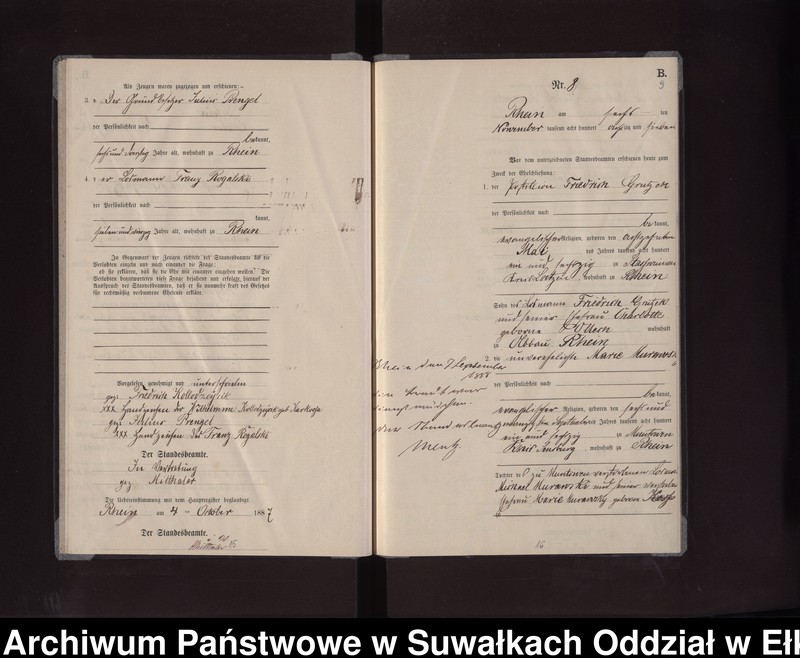 Als Zeugen waren zugezogen und erschienen:
3. der Grundbesitzer Julius Prengel
der Persönlichkeit nach
bekannt,
sechsundvierzig Jahre alt, wohnhaft zu Rhein
4. der Losmann Franz Rogalski
der Persönlichkeit nach
kannt,
siebenundvierzig Jahre alt, wohnhaft zu Rhein
In Gegenwart der Zeugen richtete der Standesbeamte an die
Verlobten einzeln und nach einander die Frage:
ob sie erklären, daß sie die Ehe mit einander eingehen wollen. Die
Verlobten beantworteten diese Frage bejahend und erfolgte hierauf der
Ausspruch des Standesbeamten, daß er sie nunmehr kraft des Gesetzes
für rechtmäßig verbundene Eheleute erkläre.
Vorgelesen, genehmigt und unterschrieben
gez. Friedrich Kollodzeyzik
XXX Handzeichen der Wilhelmine
gez. Julius Prengel
XXX Handzeichen des Franz Rogalski
Der Standesbeamte.
In Vertretung
gez. Milthaler
Die Uebereinstimmung mit dem Hauptregister beglaubigt
Rhein am 4 Oktober 1887
Der Standesbeamte.
B.
Nr. 8
9
Rhein am sechs ten
November tausend acht hundert achtzig und sieben
Vor dem unterzeichneten Standesbeamten erschienen heute zum
Zweck der Eheschließung:
1. der Postillion Friedrich
der Persönlichkeit nach
bekannt,
evangelischer Religion, geboren den
Mai des Jahres tausend acht hundert
ein und sechszig zu
Kreis Loetzen wohnhaft zu Rhein
Sohn des Losmann Friedrich
und seiner Ehefrau Charlotte
geborene wohnhaft
zu Abbau Rhein
2. die unverehelichte Marie
Rhein den 7 September
1888
der Persönlichkeit nach
bekannt,
Die Braut war
evangelischer Religion, geboren den sechs und
Dienstmädchen.
zwanzigsten September des Jahres tausend acht hundert
Der Standesbeamte
ein und sechzig zu
Mentz
Kreis Sensburg, wohnhaft zu Rhein
Tochter des zu verstorbenen Losmann
Michael und seiner verstorbenen
Ehefrau Marie geborene
16
Archiwum Państwowe w Suwałkach Oddział w Ełk